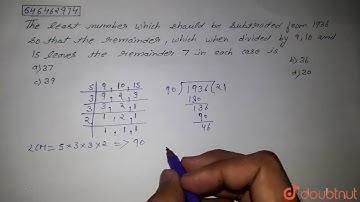 646462974
The least number which should be subtracted from 1936
so that the remainder, which when divided by 9, 10 and
15 leaves the remainder 7 in each case is
a) 37
b) 36
c) 39
d) 30
5 | 9, 10, 15
3 | 9, 2, 3
3 | 3, 2, 1
2 | 1, 2, 1
1, 1, 1
LCM = 5 × 3 × 3 × 2 => 90
90 ) 1936 ( 21
180
136
90
46
doubtnut